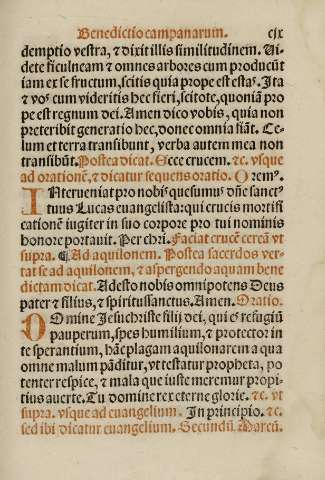 Benedictio campanarum. cjx
demptio vestra, & dixit illis similitudinem. Ui-
dete ficulneam & omnes arbores cum producūt
iam ex se fructum, scitis quia prope est estaˢ. Ita
& voˢ cum videritis hec fieri, scitote, quoniā pro
pe est regnum dei. Amen dico vobis, quia non
preteribit generatio hec, donec omnia fiāt. Ce-
lum et terra transibunt, verba autem mea non
transibūt. Postea dicat. Ecce crucem. &c. vsque
ad orationē, & dicatur sequens oratio. Oremˢ.
INterueniat pro nobiˢ quesumuˢ dn̄e sanct'
tuus Lucas euangelista: qui crucis mortifi
cationē iugiter in suo corpore pro tui nominis
honore portauit. Per chri. Faciat crucē cereā vt
supra. ¶ Ad aquilonem. Postea sacerdos ver-
tat se ad aquilonem, & aspergendo aquam bene
dictam dicat. Adesto nobis omnipotens Deus
pater & filius, & spiritussanctus. Amen. Oratio.
DOmine Jesuchriste filij dei, qui eˢ refugiū
pauperum, spes humilium, & protector in
te sperantium, hāc plagam aquilonarem a qua
omne malum pāditur, vt testatur propheta, po
tenter respice, & mala que iuste meremur propi-
tius auerte. Tu domine rex eterne glorie. &c. vt
supra. vsque ad euangelium. In principio. &c.
sed ibi dicatur euangelium. Secundū Marcū.